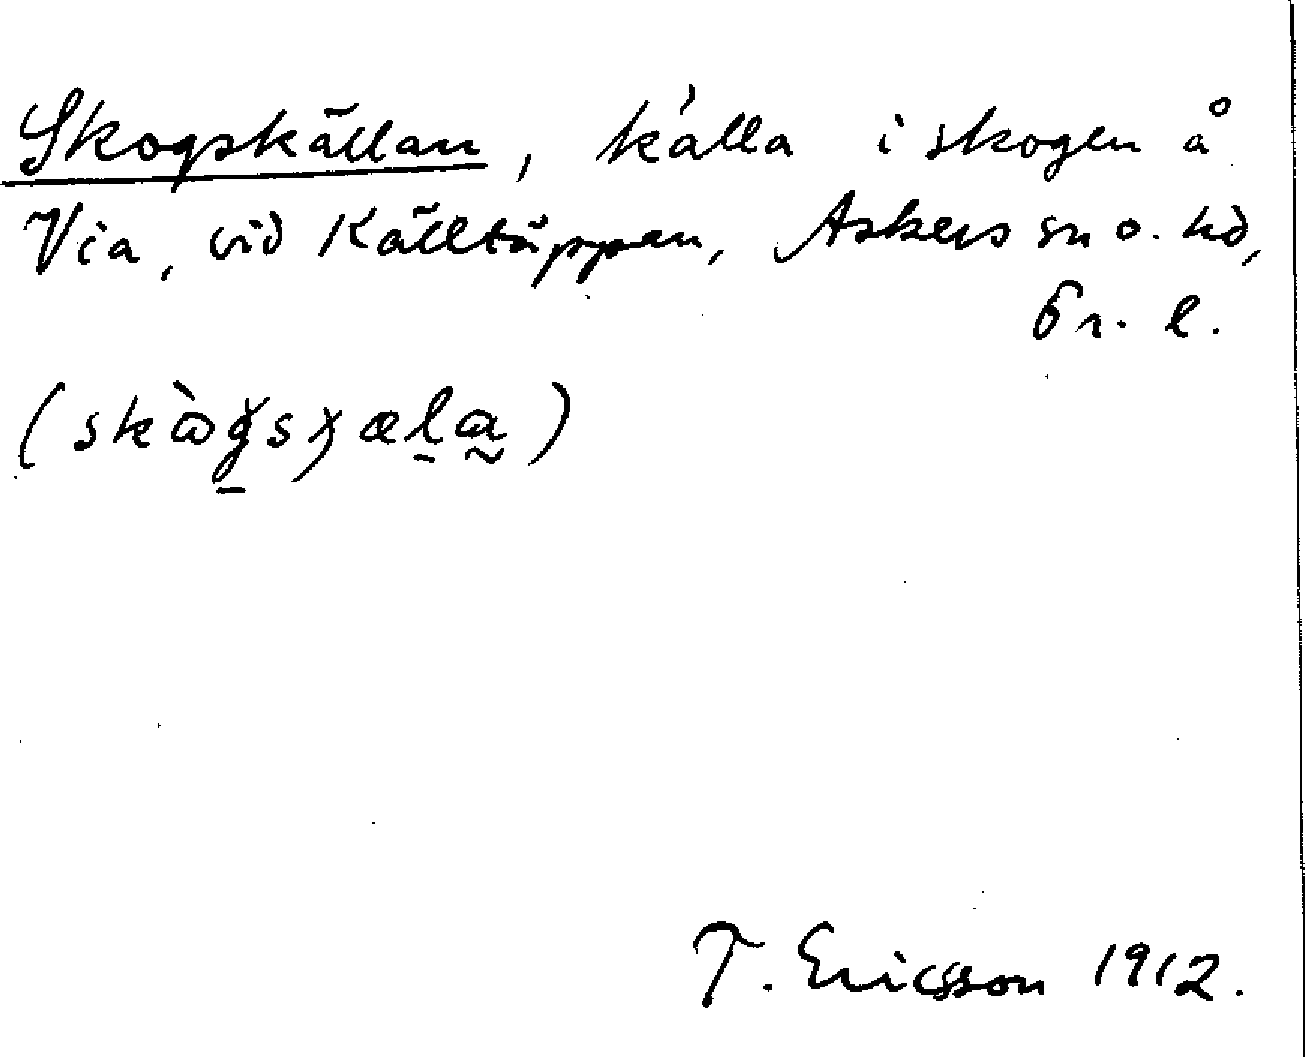 Skogskällan, källa i skogen å
Via, vid Källtäppan, Askers sn o. hd,
Ör. l.
T. Ericsson 1912.